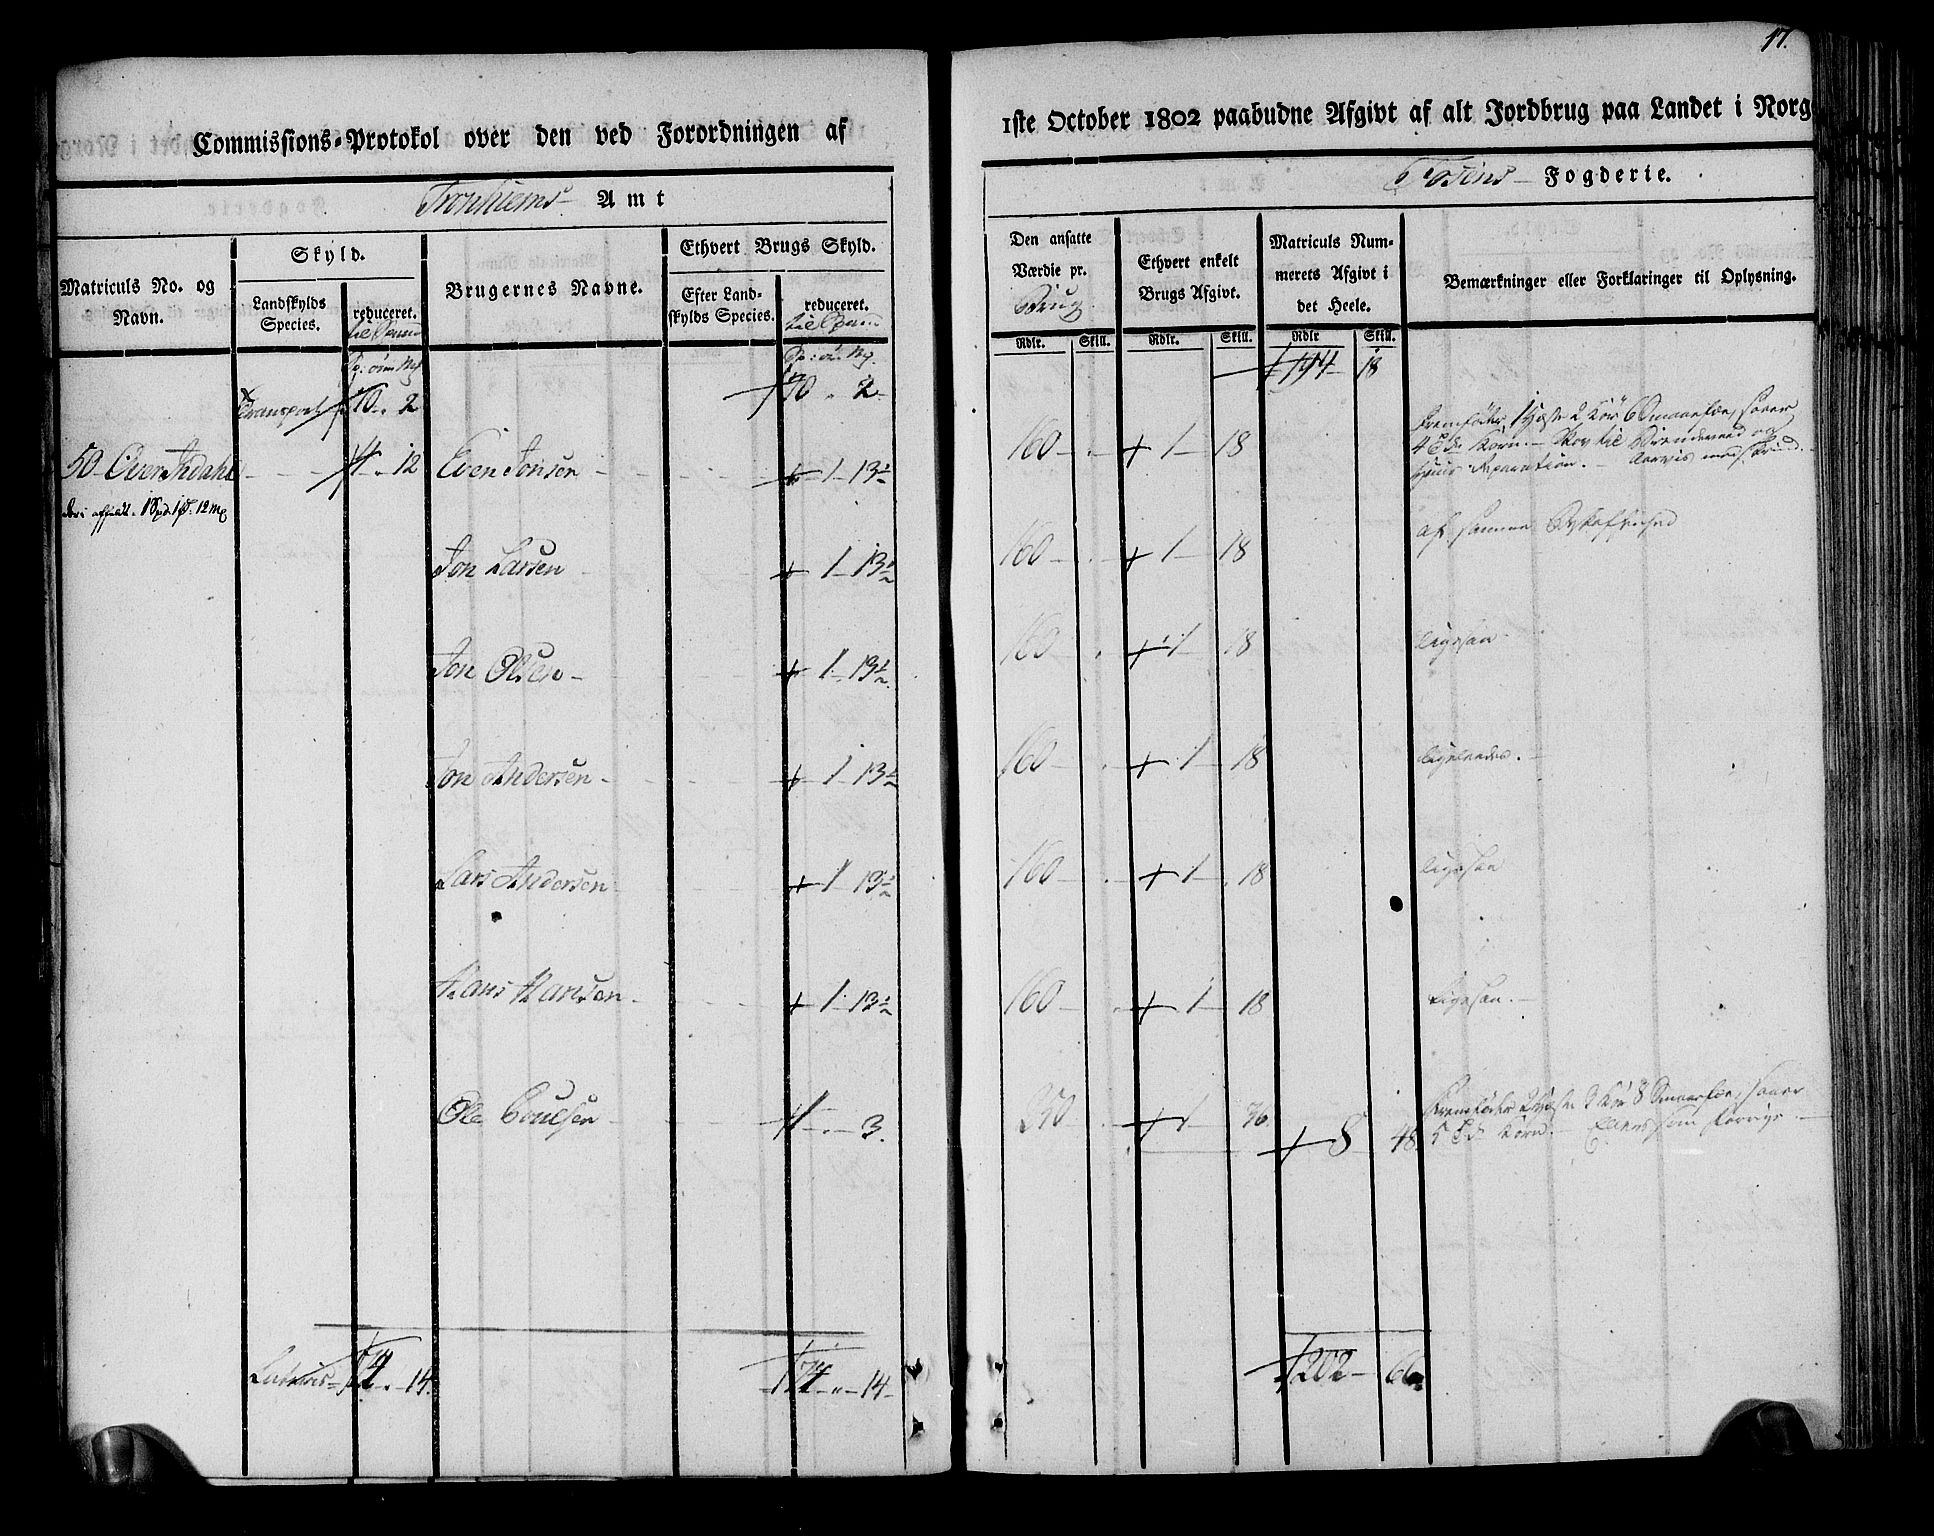 17.
Commissions-Protokol over den ved Forordningen af
1ste October 1802 paabudne Afgivt af alt Jordbrug paa Landet i Norg
Tronhiems Amt
Fosens Fogderie.
Matriculs No. og Navn.
Skyld.
Landskylds Species.
reduceret.
Brugernes Navne.
Ethvert Brugs Skyld.
Efter Landskylds Species.
reduceret.
Den ansatte Værdie pr. Brug
Ethvert enkelt Brugs Afgivt.
Matriculs Nummerets Afgivt i det Heele.
Bemærkninger eller Forklaringer til Oplysning.
Rdlr. Skill. Rdlr. Skill. Rdlr Skill.
Transport 70 " 2 70 " 2 194 18
50 Oven Aadahl 4 " 12 Even Jonsen 1 13½ 160 1 18
1 Spd. 1 12 Mk
Jon Larsen 1 13½ 160 1 18 af samme Beskaffenhed
Jon Olsen 1 13½ 160 1 18 ligesaa
Jon Andersen 1 13½ 160 1 18 ligeledes.
Lars Andersen 1 13½ 160 1 18 ligesaa
Hans Hansen 1 13½ 160 1 18 ligesaa.
Ole Poulsen 1 " 3. 250 1 36 8 48
5 Korn.
Lateris 74 " 14 74 " 14 202 66